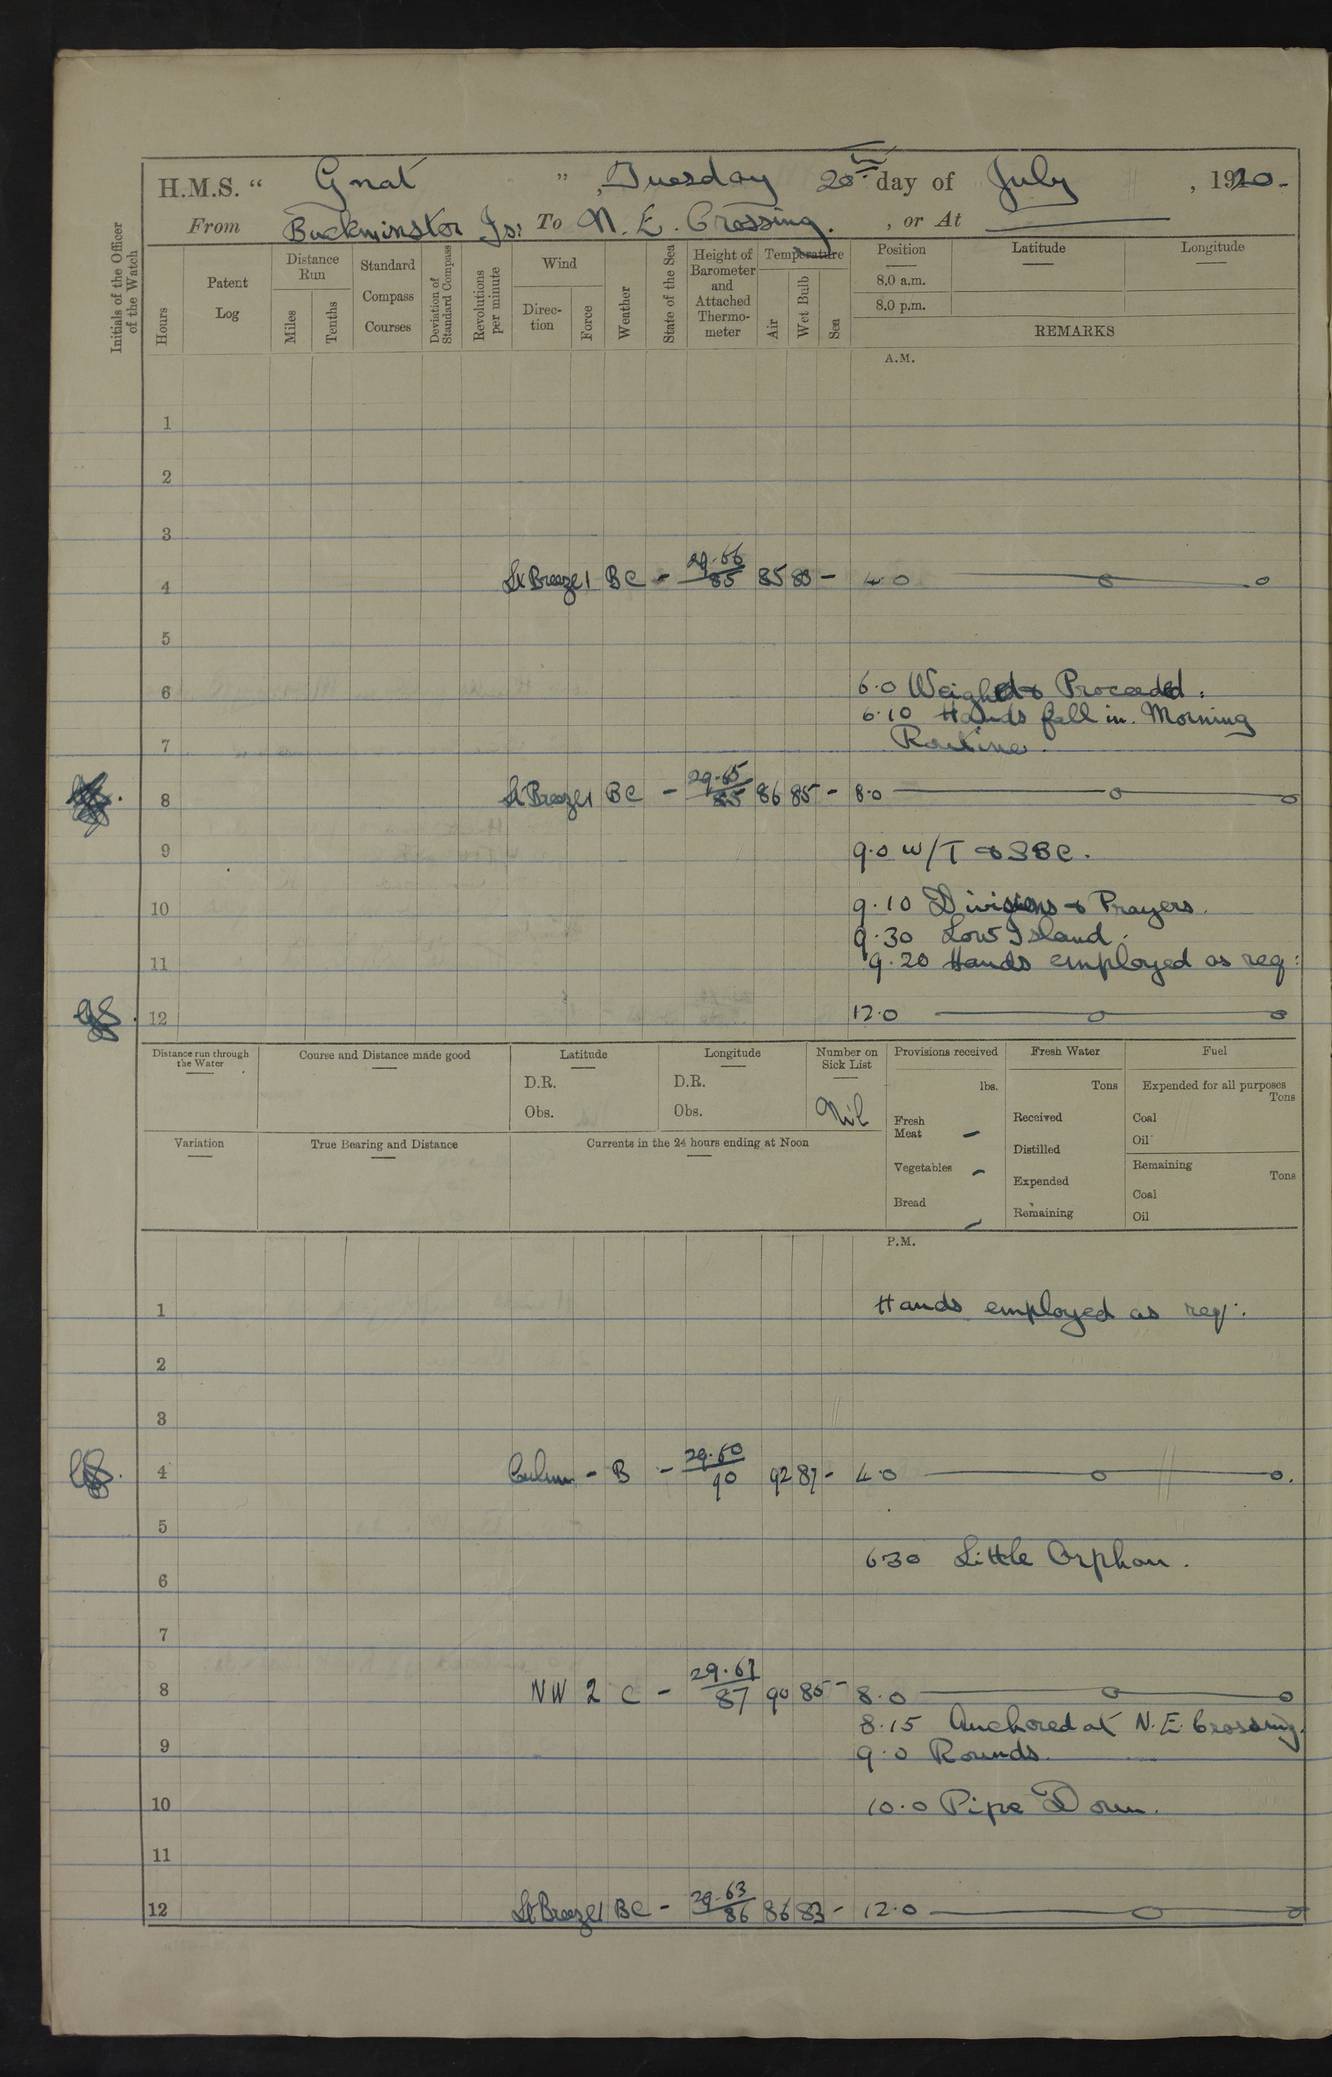 H.M.S. “ Gnat ” , Tuesday 20th day of July , 1920.
From Buckminster Is: To N. E. Crossing. , or At
Initials of the Officer of the Watch
Hours
Patent Log
Distance Run
Miles
Tenths
Standard Compass Courses
Deviation of Standard Compass
Revolutions per minute
Wind
Direction
Force
Weather
State of the Sea
Height of Barometer and Attached Thermometer
Temperature
Air
Wet Bulb
Sea
Position
8.0 a.m.
8.0 p.m.
Latitude
Longitude
REMARKS
A.M.
1
2
3
4 Lt Breeze 1 BC - 29.66 85 85 83 - 4.0
5
6 6.0 Weighed & Proceeded.
6.10 Hands fall in. Morning
7 Routine.
8 Lt Breeze 1 BC - 29.65 85 86 85 - 8.0
9 9.0 W/T & SBC.
10 9.10 Divisions & Prayers.
9.30 Low Island.
11 9.20 Hands employed as req:
12 12.0
Distance run through the Water
Course and Distance made good
Latitude
D.R.
Obs.
Longitude
D.R.
Obs.
Number on Sick List
Nil
Provisions received
lbs.
Fresh Meat -
Vegetables -
Bread -
Fresh Water
Tons
Received
Distilled
Expended
Remaining
Fuel
Expended for all purposes
Tons
Coal
Oil
Remaining
Tons
Coal
Oil
Variation
True Bearing and Distance
Currents in the 24 hours ending at Noon
P.M.
1 Hands employed as req:.
2
3
4 Calm - B - 29.60 90 92 87 - 4.0
5
6.30 Little Orphan.
6
7
8 NW 2 C - 29.61 87 90 85 - 8.0
8.15 Anchored at N.E. Crossing.
9 9.0 Rounds.
10 10.0 Pipe Down.
11
12 Lt Breeze 1 BC - 29.63 86 86 83 - 12.0